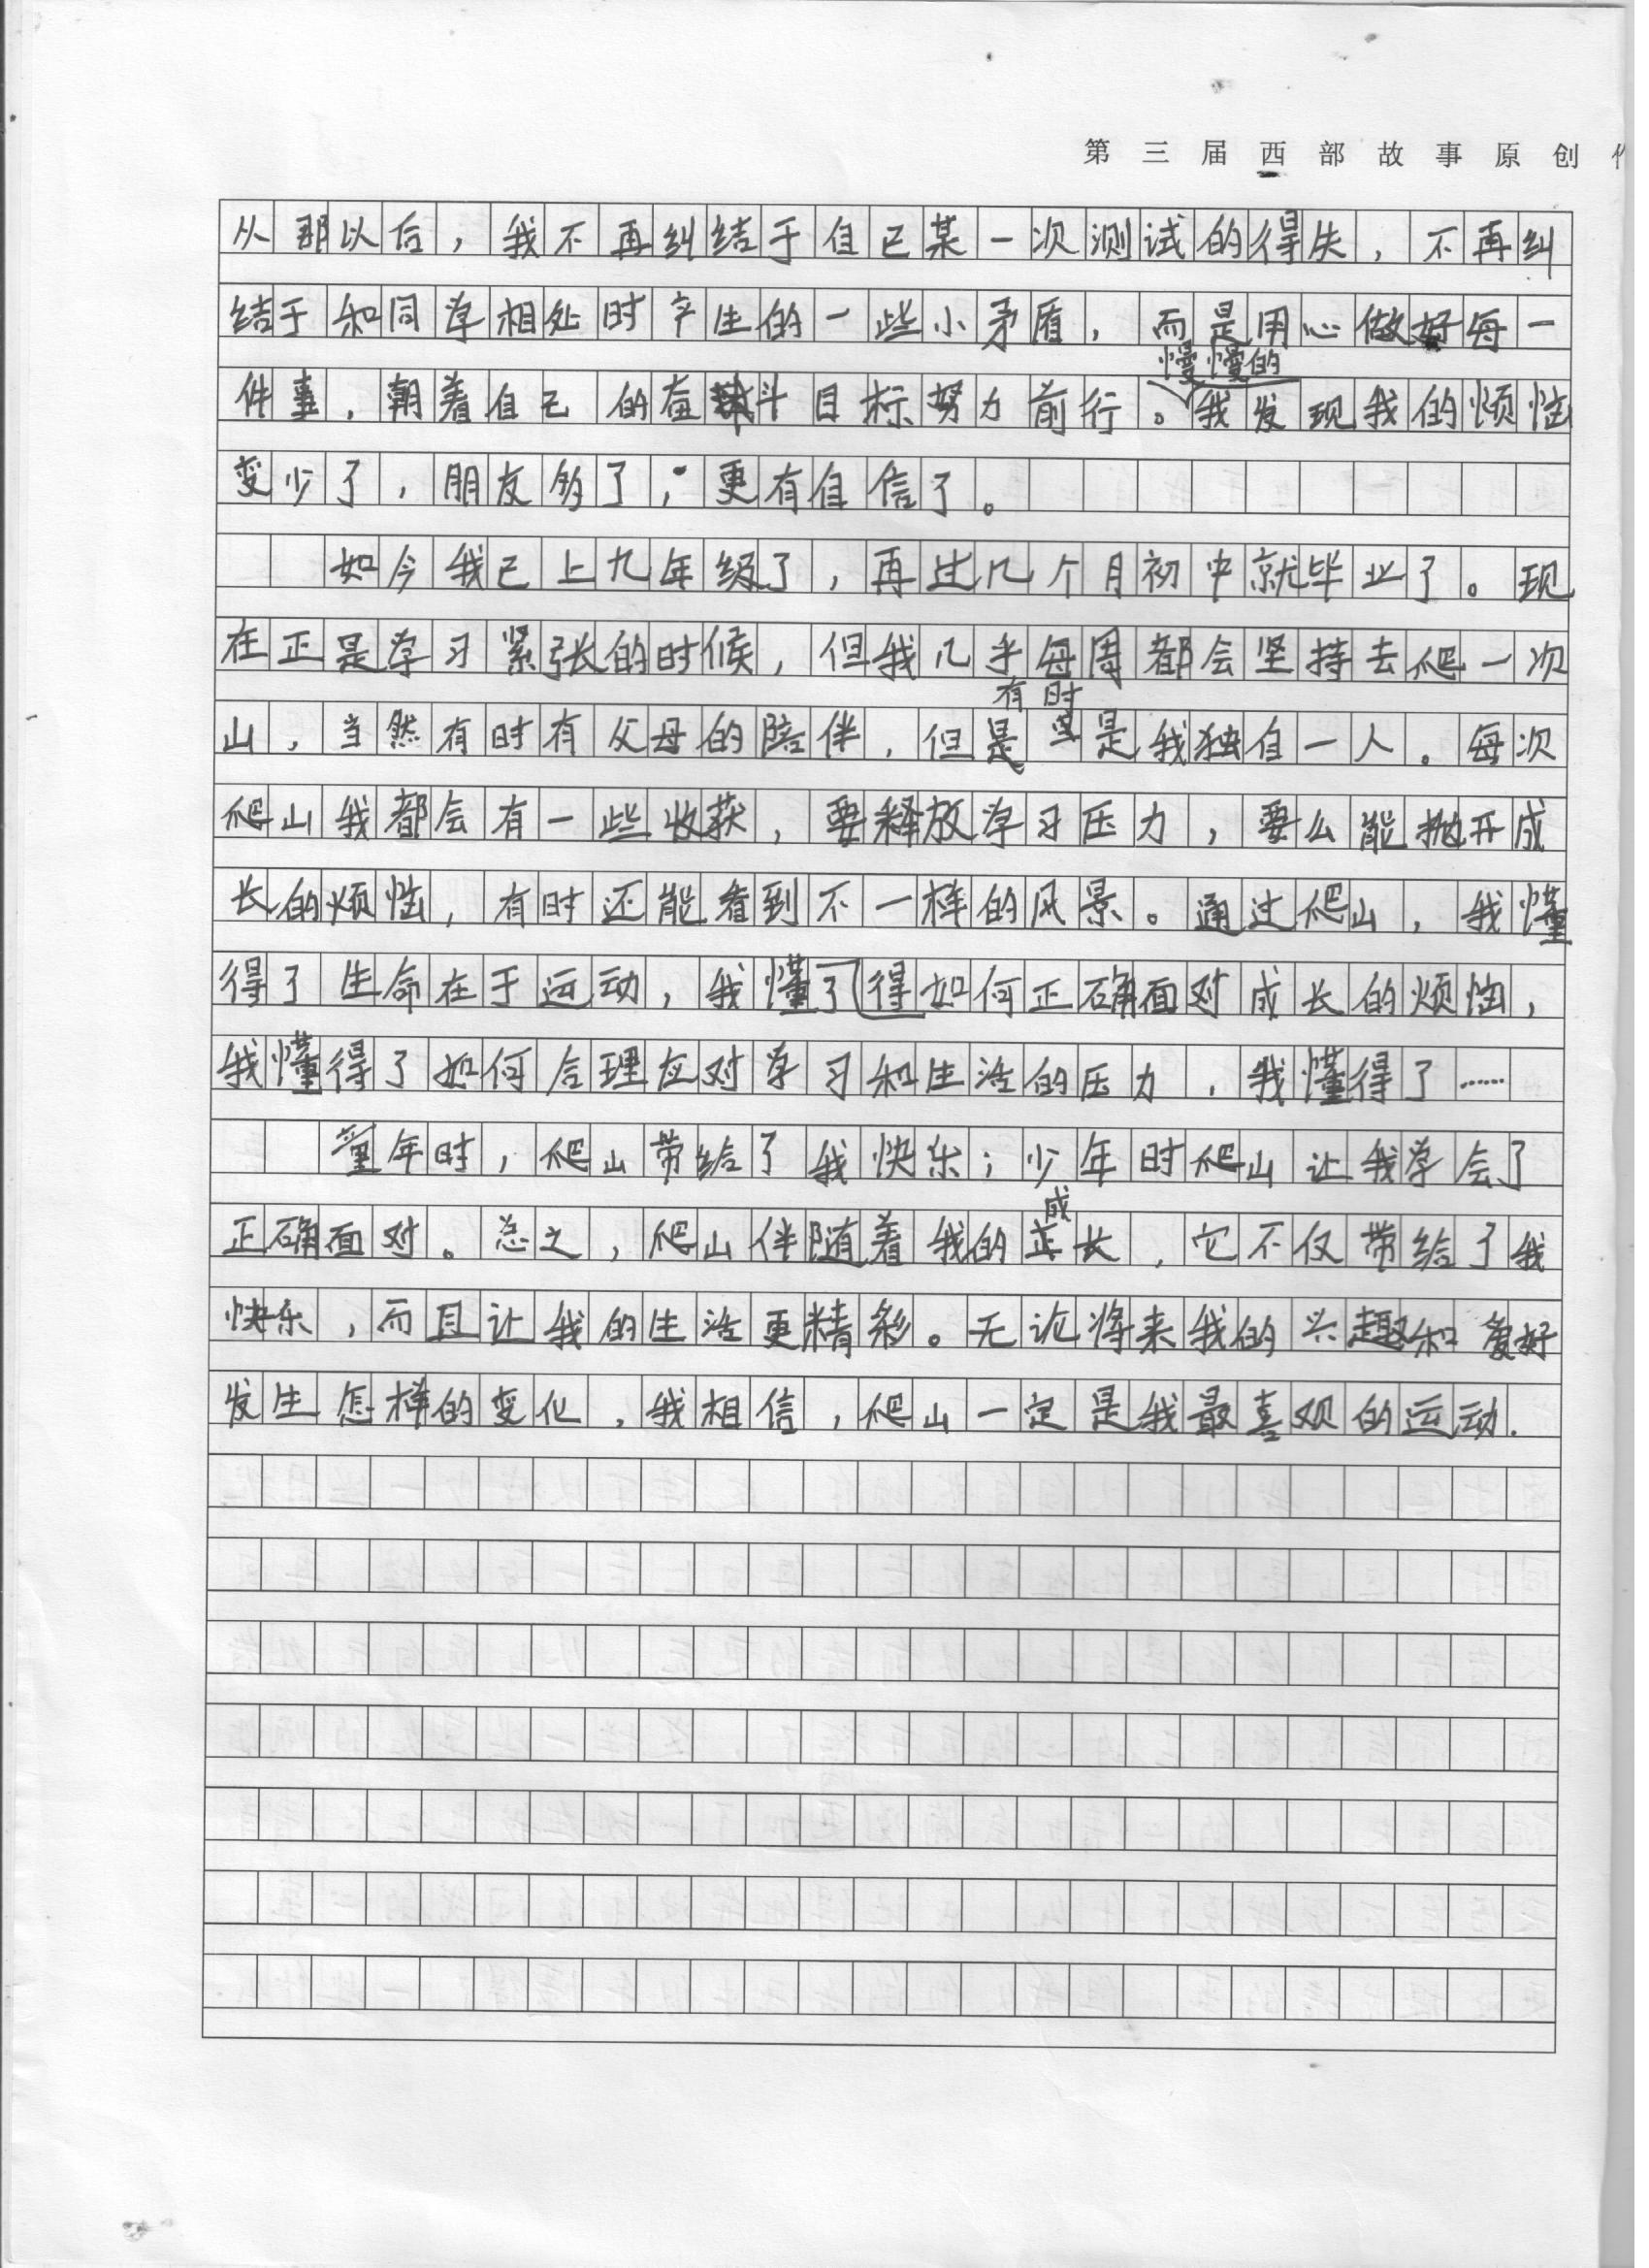 第三届西部故事原创
从那以后，我不再纠结于自己某一次测试的得失，不再纠
结于和同学相处时产生的一些小矛盾，而是用心做好每一
慢慢的
件事，朝着自己的奋斗目标努力前行。我发现我的烦恼
变少了，朋友多了，更有自信了。
如今我已上九年级了，再过几个月初中就毕业了。现
在正是学习紧张的时候，但我几乎每周都会坚持去爬一次
有时
山，当然有时有父母的陪伴，但是是我独自一人。每次
爬山我都会有一些收获，要释放学习压力，要么能抛开成
长的烦恼，有时还能看到不一样的风景。通过爬山，我懂
得了生命在于运动，我懂了得如何正确面对成长的烦恼，
我懂得了如何合理应对学习和生活的压力，我懂得了……
童年时，爬山带给了我快乐；少年时爬山让我学会了
成
正确面对。总之，爬山伴随着我的长，它不仅带给了我
快乐，而且让我的生活更精彩。无论将来我的兴趣和爱好
发生怎样的变化，我相信，爬山一定是我最喜欢的运动.